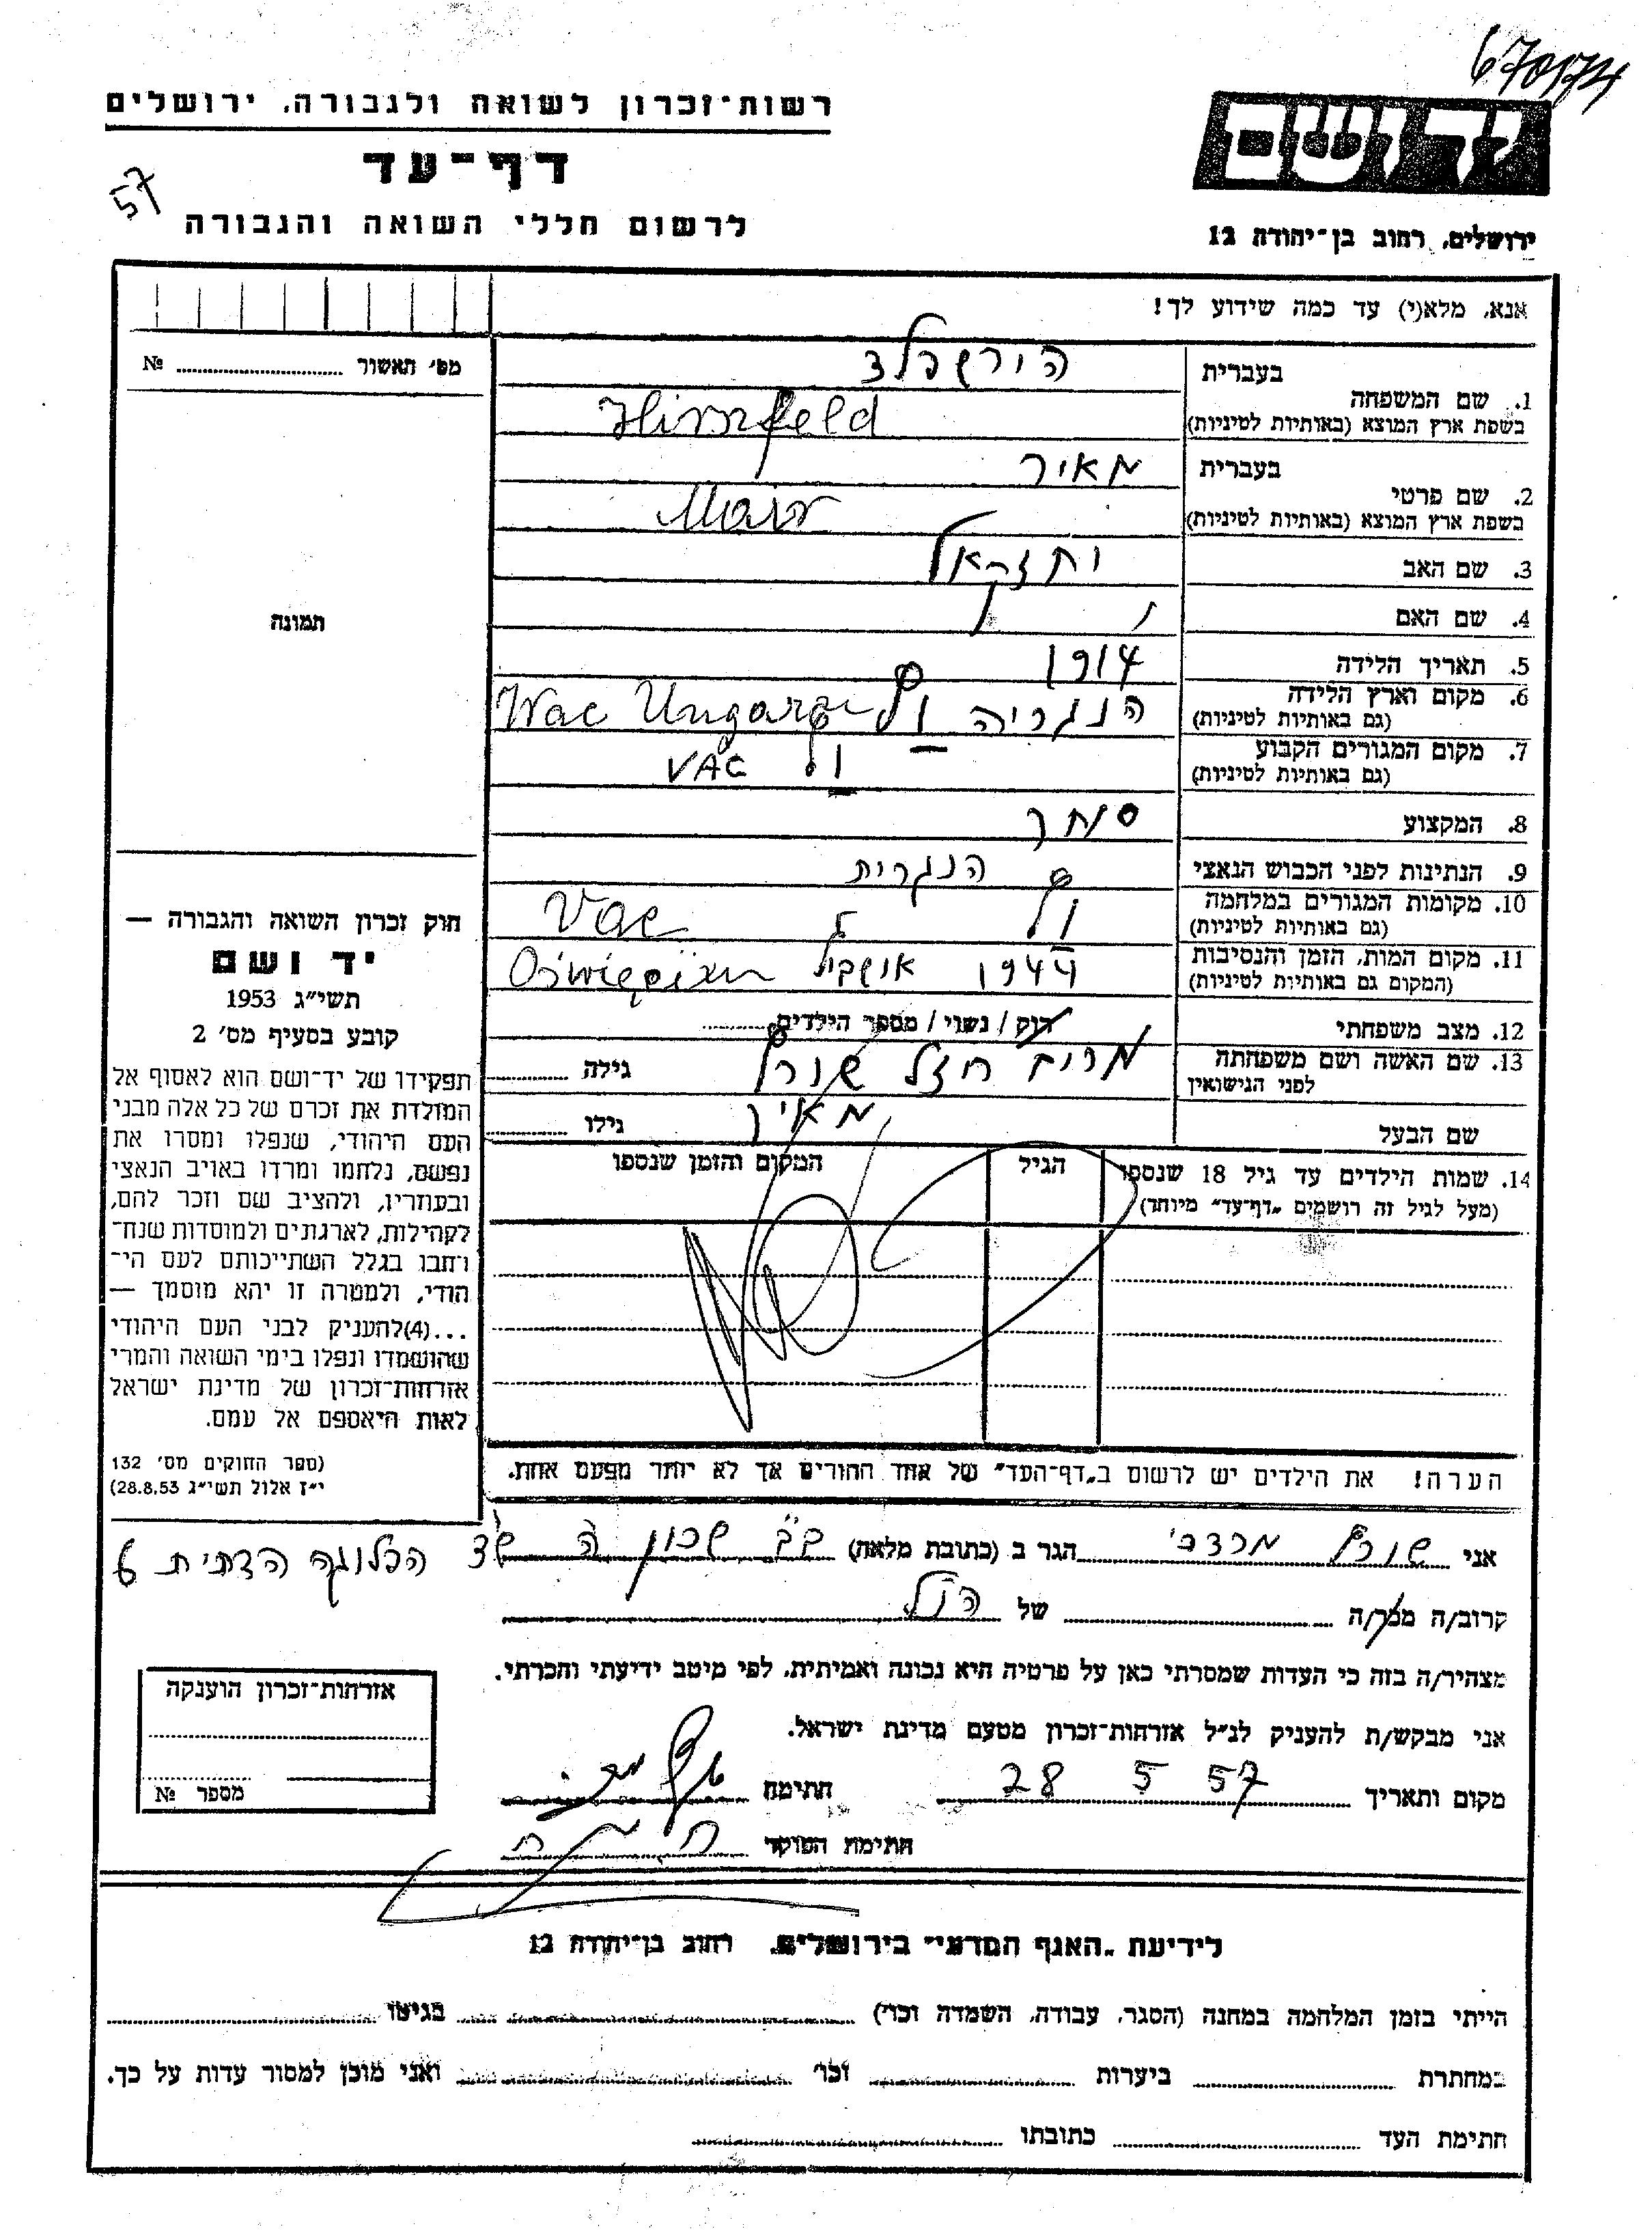 670174
רשות־זכרון לשואה ולגבורה, ירושלים
דף־עד
57
לרשום חללי השואה והגבורה
ירושלים, רחוב בן־יהודה 12
אנא, מלא(י) עד כמה שידוע לך!
מס׳ תאשור № ........
1. שם המשפחה
בעברית הירשפלד
בשפת ארץ המוצא (באותיות לטיניות) Hirszfeld
2. שם פרטי
בעברית מאיר
בשפת ארץ המוצא (באותיות לטיניות) Mair
3. שם האב יחזקאל
4. שם האם
5. תאריך הלידה 1914
6. מקום וארץ הלידה
(גם באותיות לטיניות) הנגריה Wac
7. מקום המגורים הקבוע
(גם באותיות לטיניות) VAC
8. המקצוע סוחר
9. הנתינות לפני הכבוש הנאצי הנגרית
10. מקומות המגורים במלחמה
(גם באותיות לטיניות) Vac
11. מקום המות, הזמן והנסיבות
(המקום גם באותיות לטיניות) 1944
12. מצב משפחתי רוק / נשוי / מספר הילדים ........
13. שם האשה ושם משפחתה
לפני הנישואין מרים רחל גילה ........
שם הבעל מאיר גילו ........
14. שמות הילדים עד גיל 18 שנספו
(מעל לגיל זה רושמים „דף־עד״ מיוחד)
הגיל
המקום והזמן שנספו
תמונה
חוק זכרון השואה והגבורה —
יד ושם
תשי״ג 1953
קובע בסעיף מס׳ 2
תפקידו של יד־ושם הוא לאסוף אל
המולדת את זכרם של כל אלה מבני
העם היהודי, שנפלו ומסרו את
נפשם, נלחמו ומרדו באויב הנאצי
ובעוזריו, ולהציב שם וזכר להם,
לקהילות, לארגונים ולמוסדות שנח־
רחבו בגלל השתייכותם לעם הי־
הודי, ולמטרה זו יהא מוסמך —
...(4)להעניק לבני העם היהודי
שהושמדו ונפלו בימי השואה והמרי
אזרחות־זכרון של מדינת ישראל
לאות היאספם אל עמם.
(ספר החוקים מס׳ 132
י״ז אלול תשי״ג 28.8.53)
הערה! את הילדים יש לרשום ב„דף־העד״ של אחד ההורים אך לא יותר מפעם אחת.
אני מרדכי הגר ב (כתובת מלאה) ב״ב שכון ה הפלוגה הדתית 6
קרוב/ה מכר/ה ........ של הנ״ל
מצהיר/ה בזה כי העדות שמסרתי כאן על פרטיה היא נכונה ואמיתית, לפי מיטב ידיעתי והכרתי.
אני מבקש/ת להעניק לנ״ל אזרחות־זכרון מטעם מדינת ישראל.
מקום ותאריך 28 5 57 חתימה
חתימת הפוקד
אזרחות־זכרון הוענקה
מספר №
לידיעת „האגף המדעי״ בירושלים, רחוב בן־יהודה 12
הייתי בזמן המלחמה במחנה (הסגר, עבודה, השמדה וכו׳) ........ בגיטו ........
במחתרת ........ ביערות ........ וכו׳ ........ ואני מוכן למסור עדות על כך.
חתימת העד ........ כתובתו ........